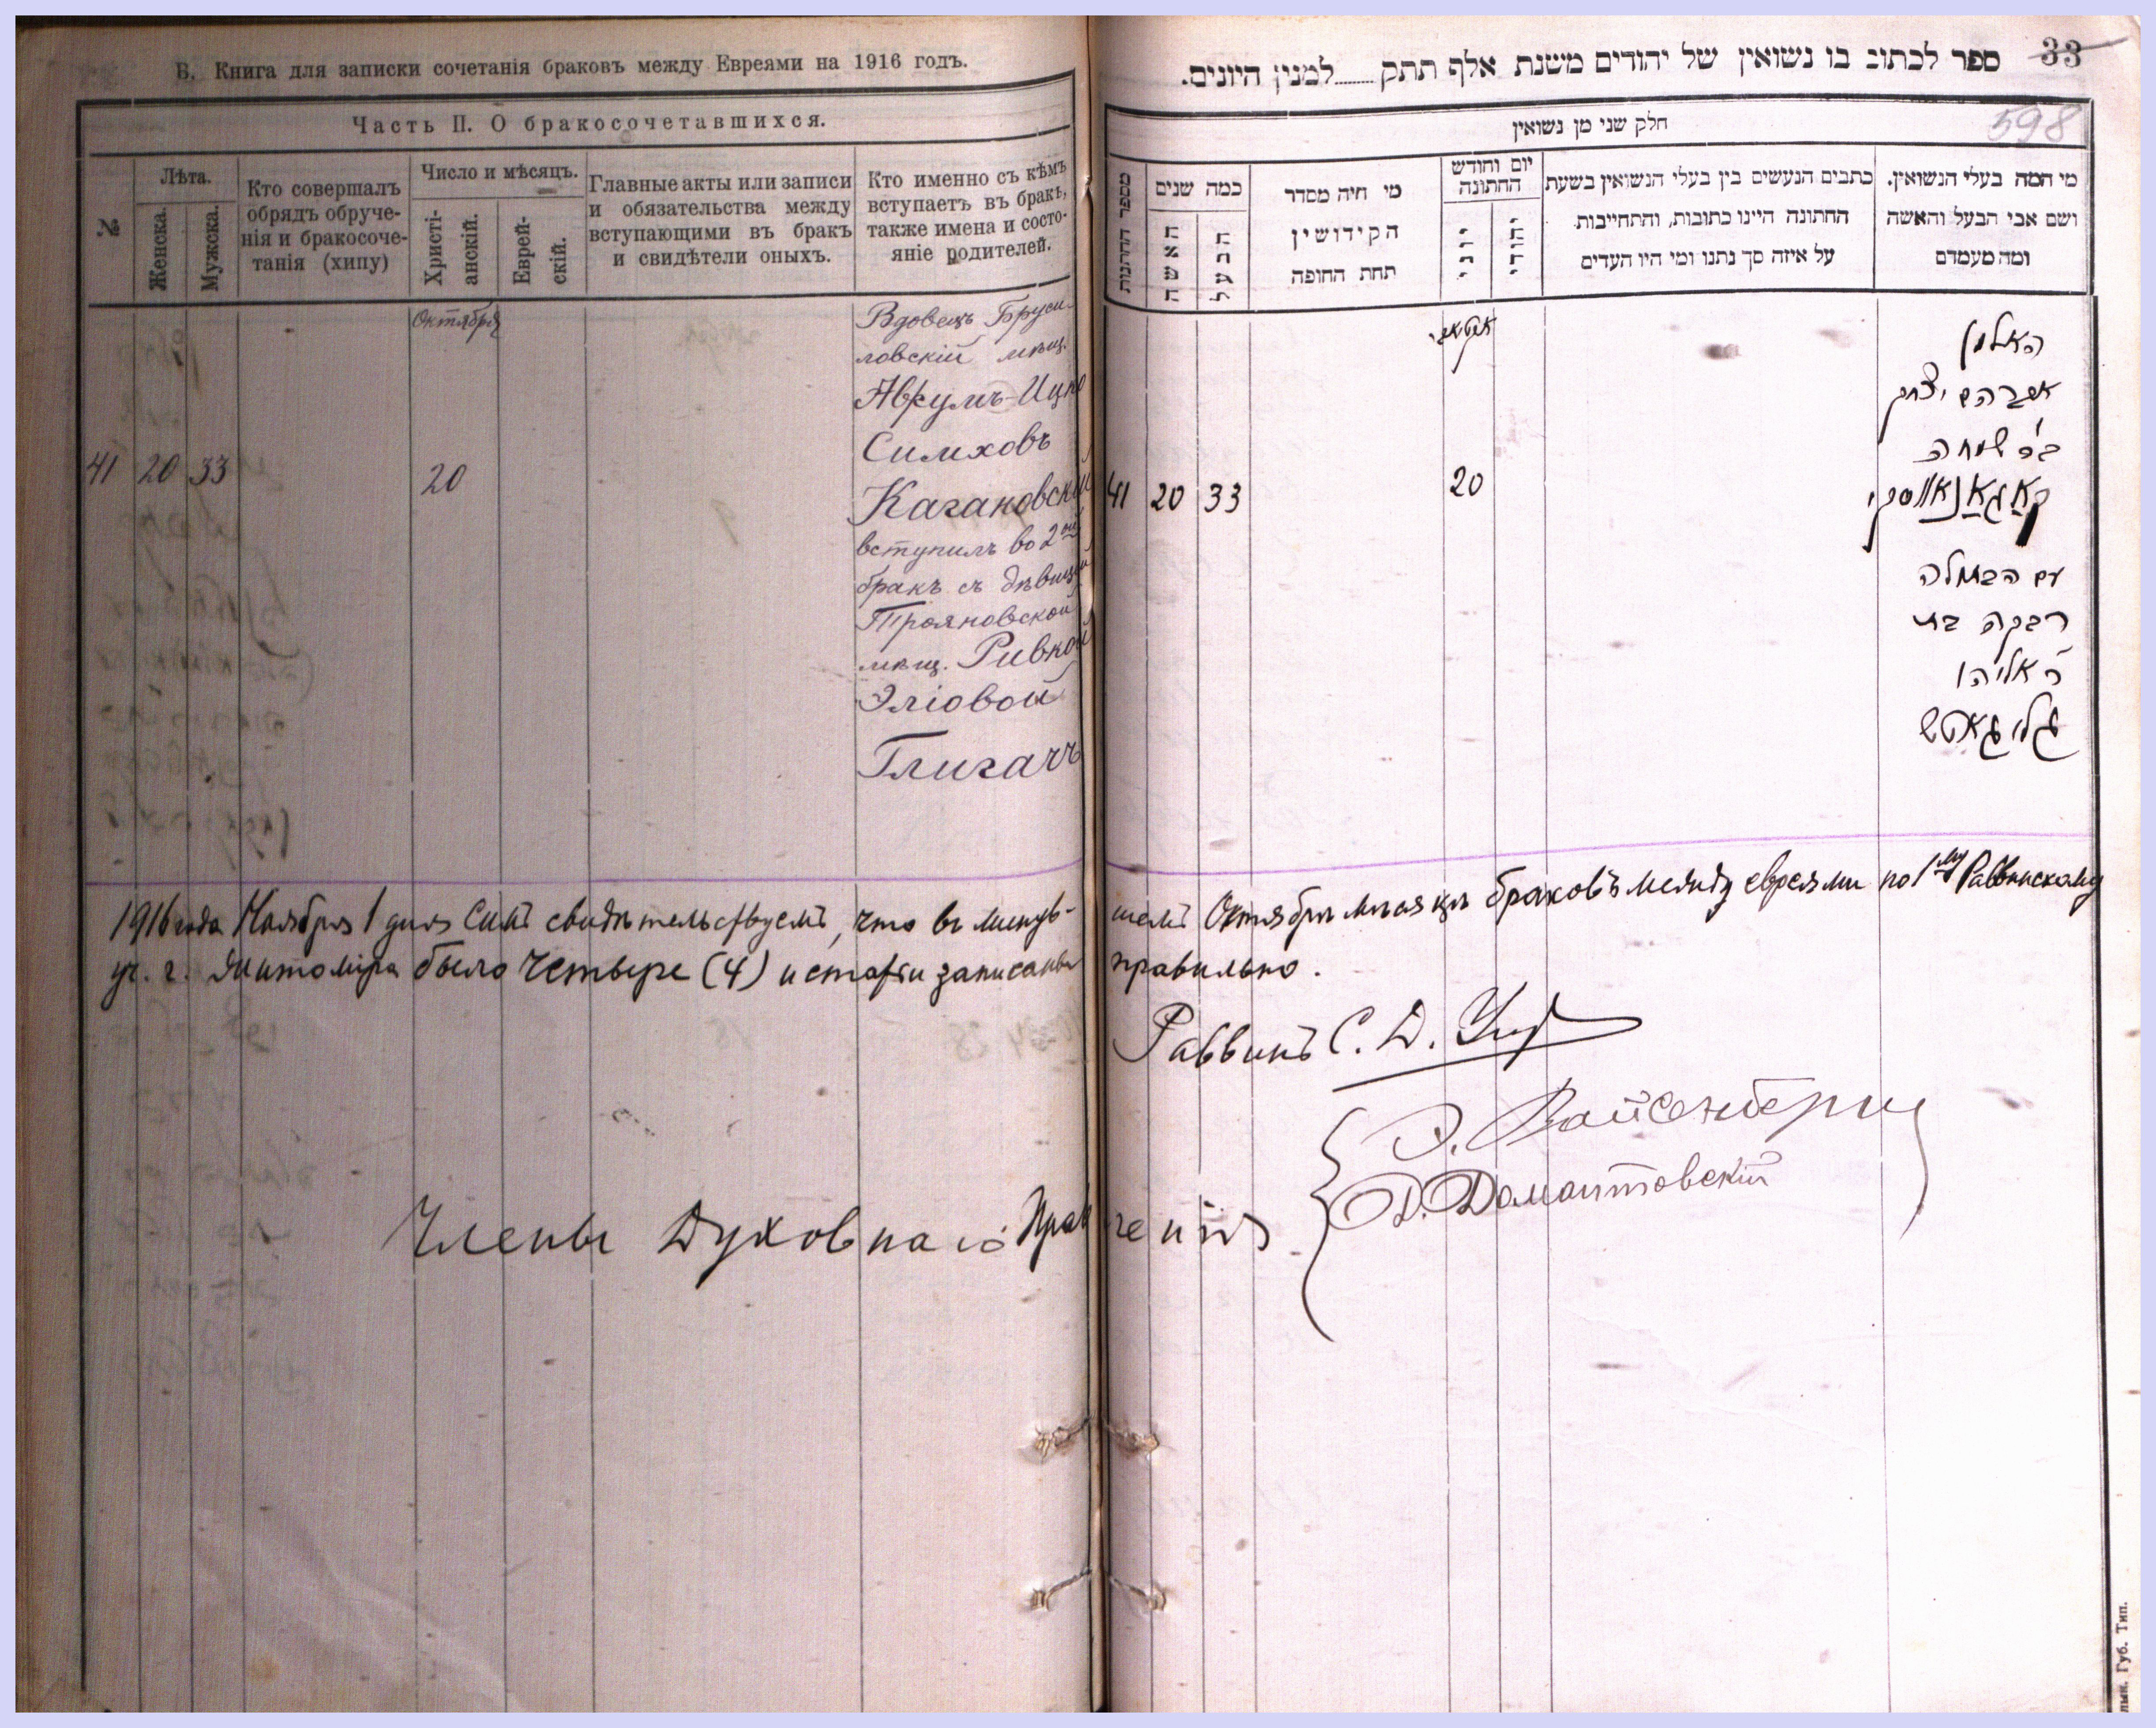 Б. Книга для записки сочетанія браковъ между Евреями на 1916 годъ.
Часть II. О бракосочетавшихся.
№
Лѣта.
Женска.
Мужска.
Кто совершалъ
обрядъ обруче-
нія и бракосоче-
танія (хипу)
Число и мѣсяцъ.
Христі-
анскій.
Еврей-
скій.
Главные акты или записи
и обязательства между
вступающими въ бракъ
и свидѣтели оныхъ.
Кто именно съ кѣмъ
вступаетъ въ бракъ,
также имена и состо-
яніе родителей.
Октября
41 20 33 20
Вдовецъ Бруси-
ловскій мѣщ.
Аврумъ-Ицко
Симховъ
Кагановскій
вступилъ во 2ой
бракъ съ дѣвицей
Трояновской
мѣщ. Ривкой
Эліовой
Глигачъ
33
ספר לכתוב בו נשואין של יהודים משנת אלף תתק........למנין היונים.
598
חלק שני מן נשואין
מספר החתונות
כמה שנים
האשה
הבעל
מי היה מסדר
הקידושין
תחת החופה
יום וחודש
החתונה
יוני
יהודי
כתבים הנעשים בין בעלי הנשואין בשעת
החתונה היינו כתובות, והתחייבות
על איזה סך נתנו ומי היו העדים
מי המה בעלי הנשואין.
ושם אבי הבעל והאשה
ומה מעמדם
41 20 33 20
האלמן
אברהם יצחק
בר שמחה
קאַגאַנאָווסקי
עם הבתולה
רבקה בת
ר אליהו
גליגאטש
1916 года Ноября 1 дня Симъ свидѣтельствуемъ, что въ минув-
шемъ Октябрѣ мѣсяцѣ браковъ между евреями по 1му Раввинскому
уч. г. Житоміра было Четыре (4) и статьи записаны
правильно.
Раввинъ С. Д.
Э. Вайсенбергъ
Д. Домонтовскій
Члены Духовнаго Правленія
Губ. Тип.